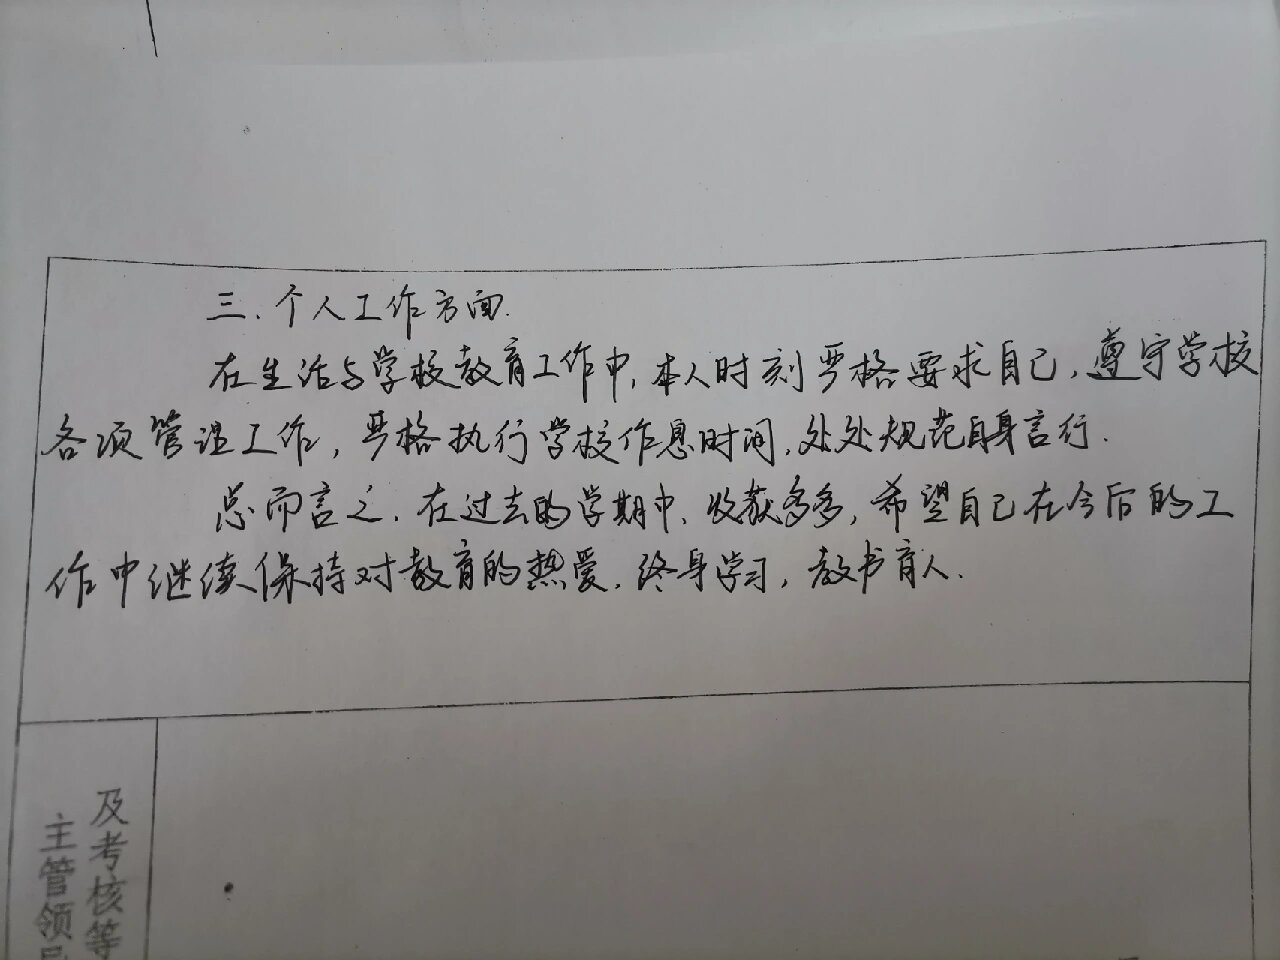 三、个人工作方面.
在生活与学校教育工作中,本人时刻严格要求自己,遵守学校
各项管理工作,严格执行学校作息时间,处处规范自身言行.
总而言之,在过去的学期中,收获多多,希望自己在今后的工
作中继续保持对教育的热爱,终身学习,教书育人.
主管领导
及考核等